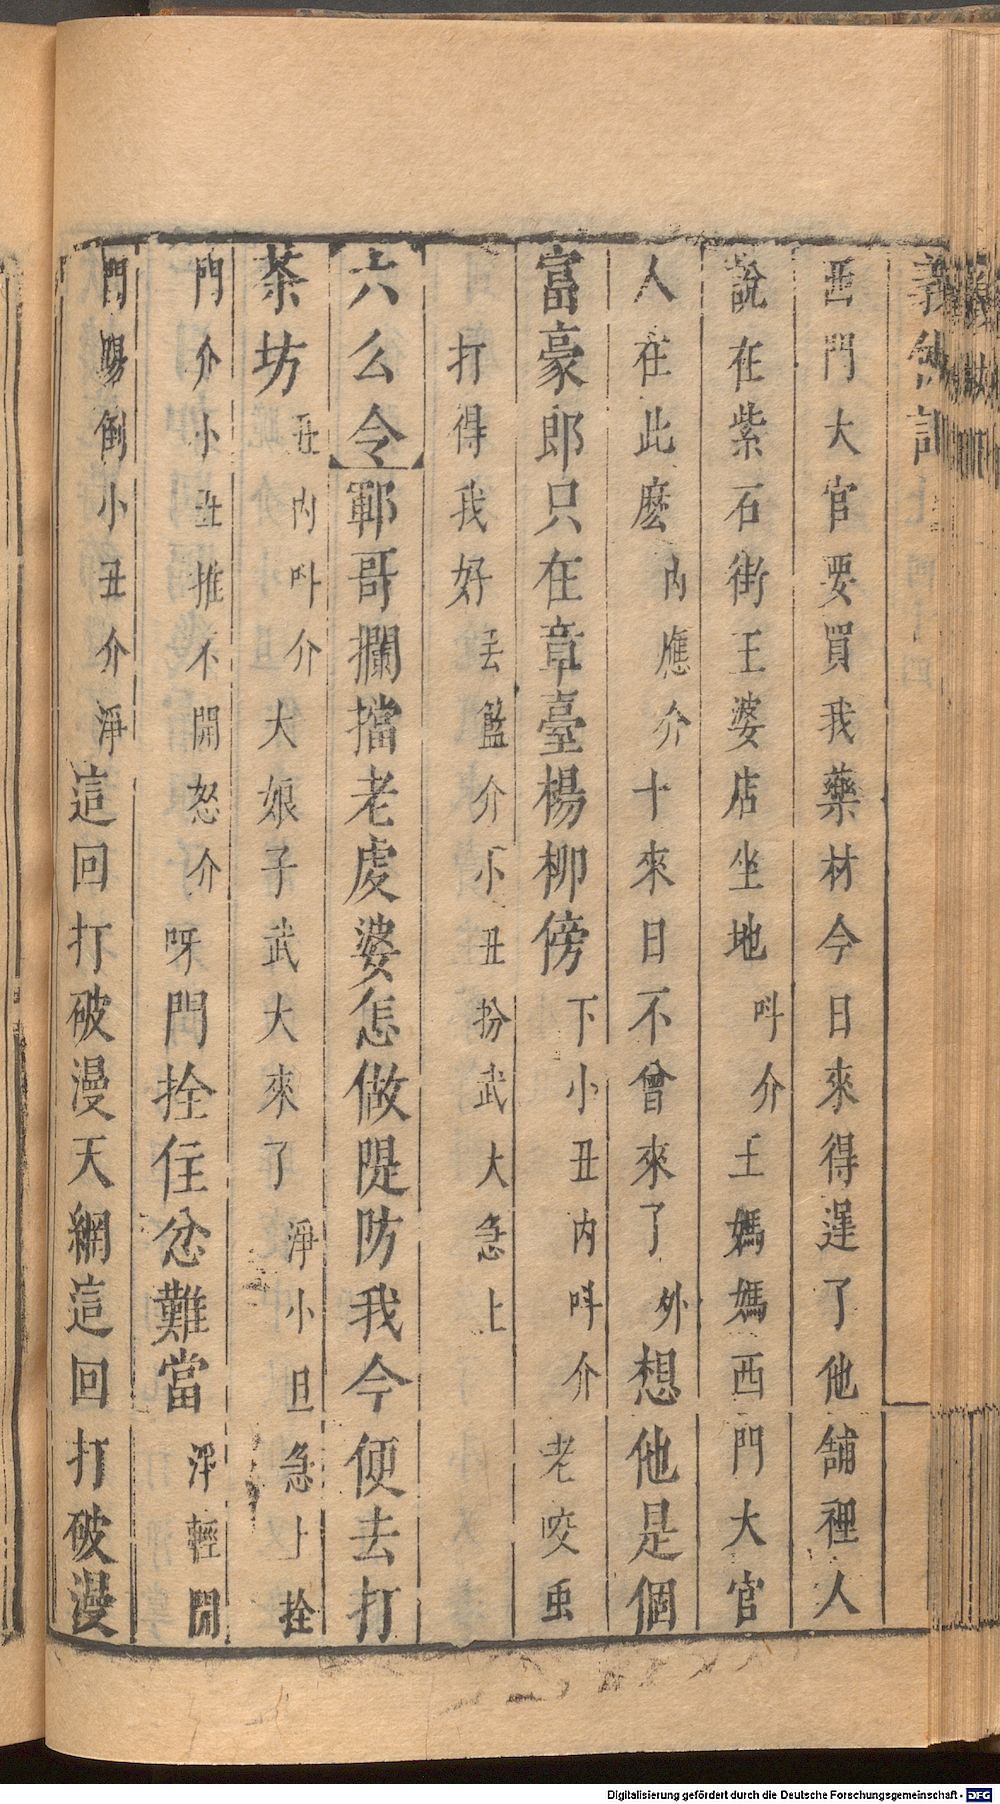 義俠記
西門大官要買我藥材今日來得遲了他舖裡人
說在紫石街王婆店坐地呌介王媽媽西門大官
人在此麽內應介十來日不曾來了外想他是個
富豪郎只在章臺楊柳傍下小丑內呌介老咬虫
打得我好丟籃介小丑扮武大急上
六么令鄆哥攔擋老虔婆怎做隄防我今便去打
茶坊丑內呌介大娘子武大來了淨小旦急上拴
門介小丑推不開怒介呀門拴住忿難當淨輕開
門踢倒小丑介淨這回打破漫天網這回打破漫
Digitalisierung gefördert durch die Deutsche Forschungsgemeinschaft - DFG